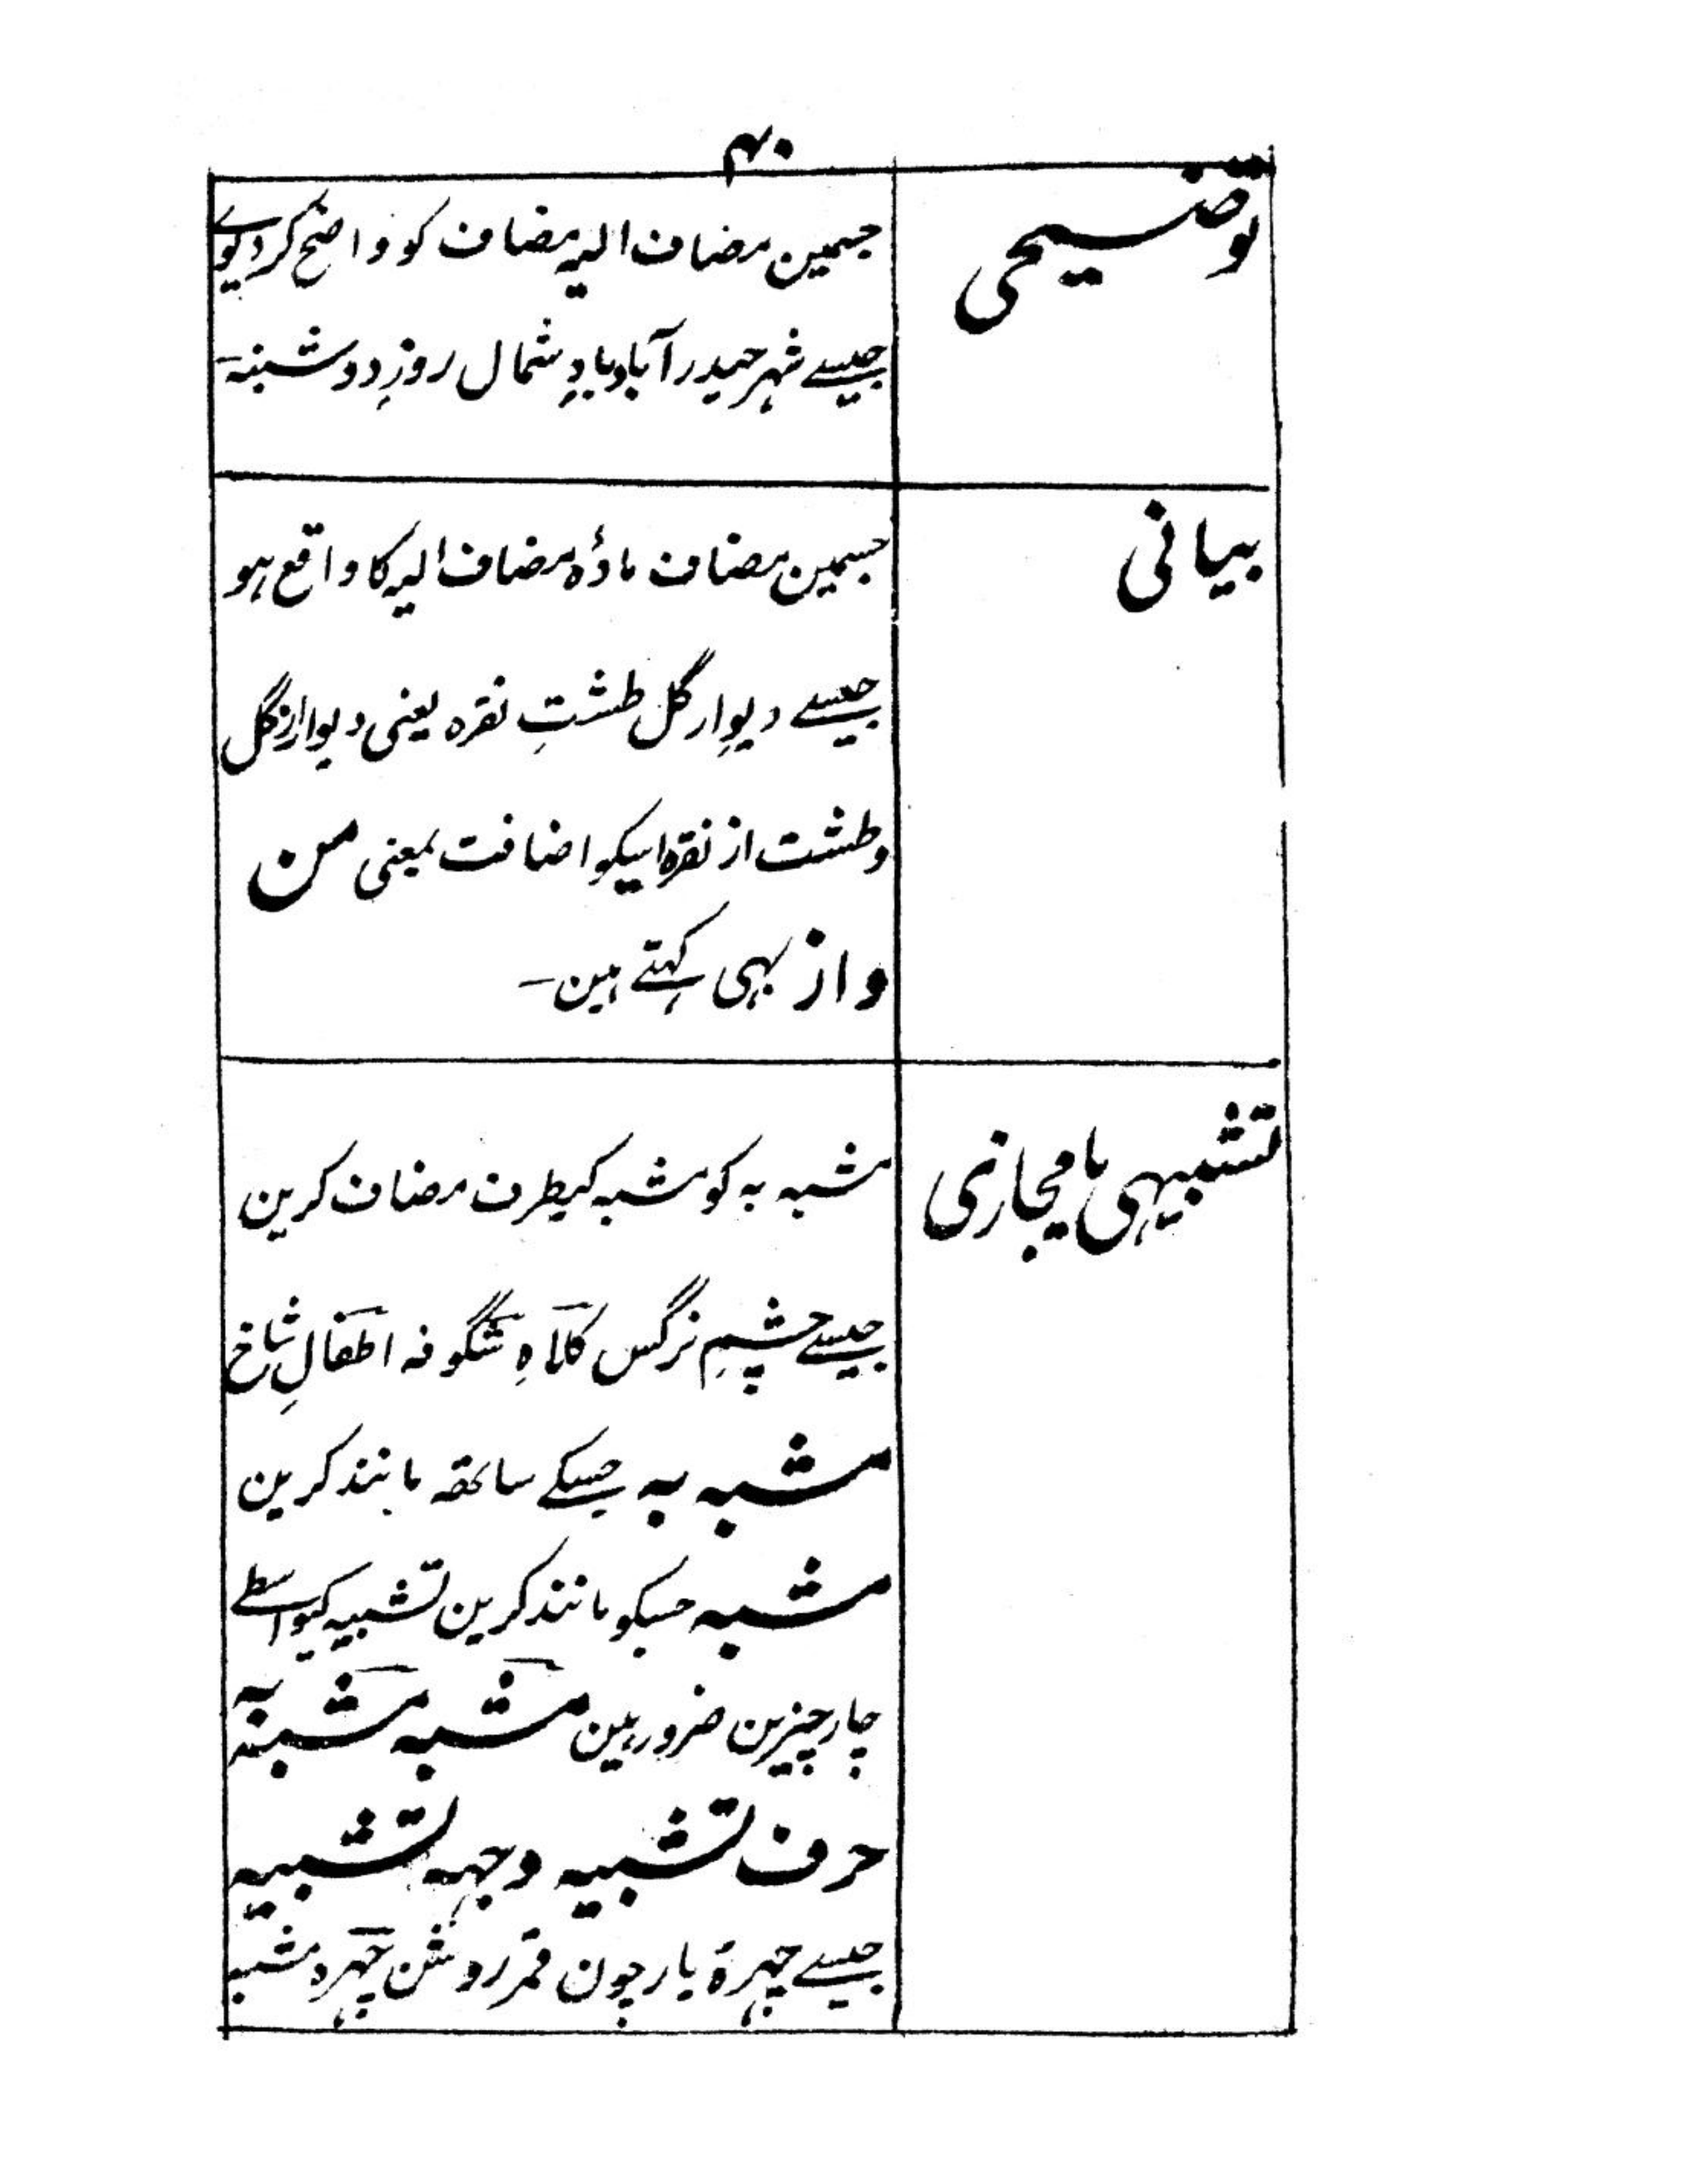 ۴۰
توضیحی
جسمین مضاف الیہ مضاف کو واضح کردیوے
جیسے شہر حیدرآباد بادِ شمال روزِ دوشنبہ۔
بیانی
جسمین مضاف مادۂ مضاف الیہ کا واقع ہو
جیسے دیوارِ گل طشتِ نقرہ یعنی دیوار از گل
وطشت از نقرہ اسیکو اضافت بمعنی من
و از بہی کہتے ہین۔
تشبیہی یا مجازی
مشبہ بہ کو مشبہ کیطرف مضاف کرین
جیسے چشمِ نرگس کلاہِ شگوفہ اطفالِ شاخ
مشبہ بہ جسکے ساتھہ مانند کرین
مشبہ جسکو مانند کرین تشبیہ کیواسطے
چار چیزین ضرور ہین مشبہ مشبہ بہ
حرف تشبیہ وجہہ تشبیہ
جیسے چہرۂ یار چون قمر روشن چہرہ مشبہ